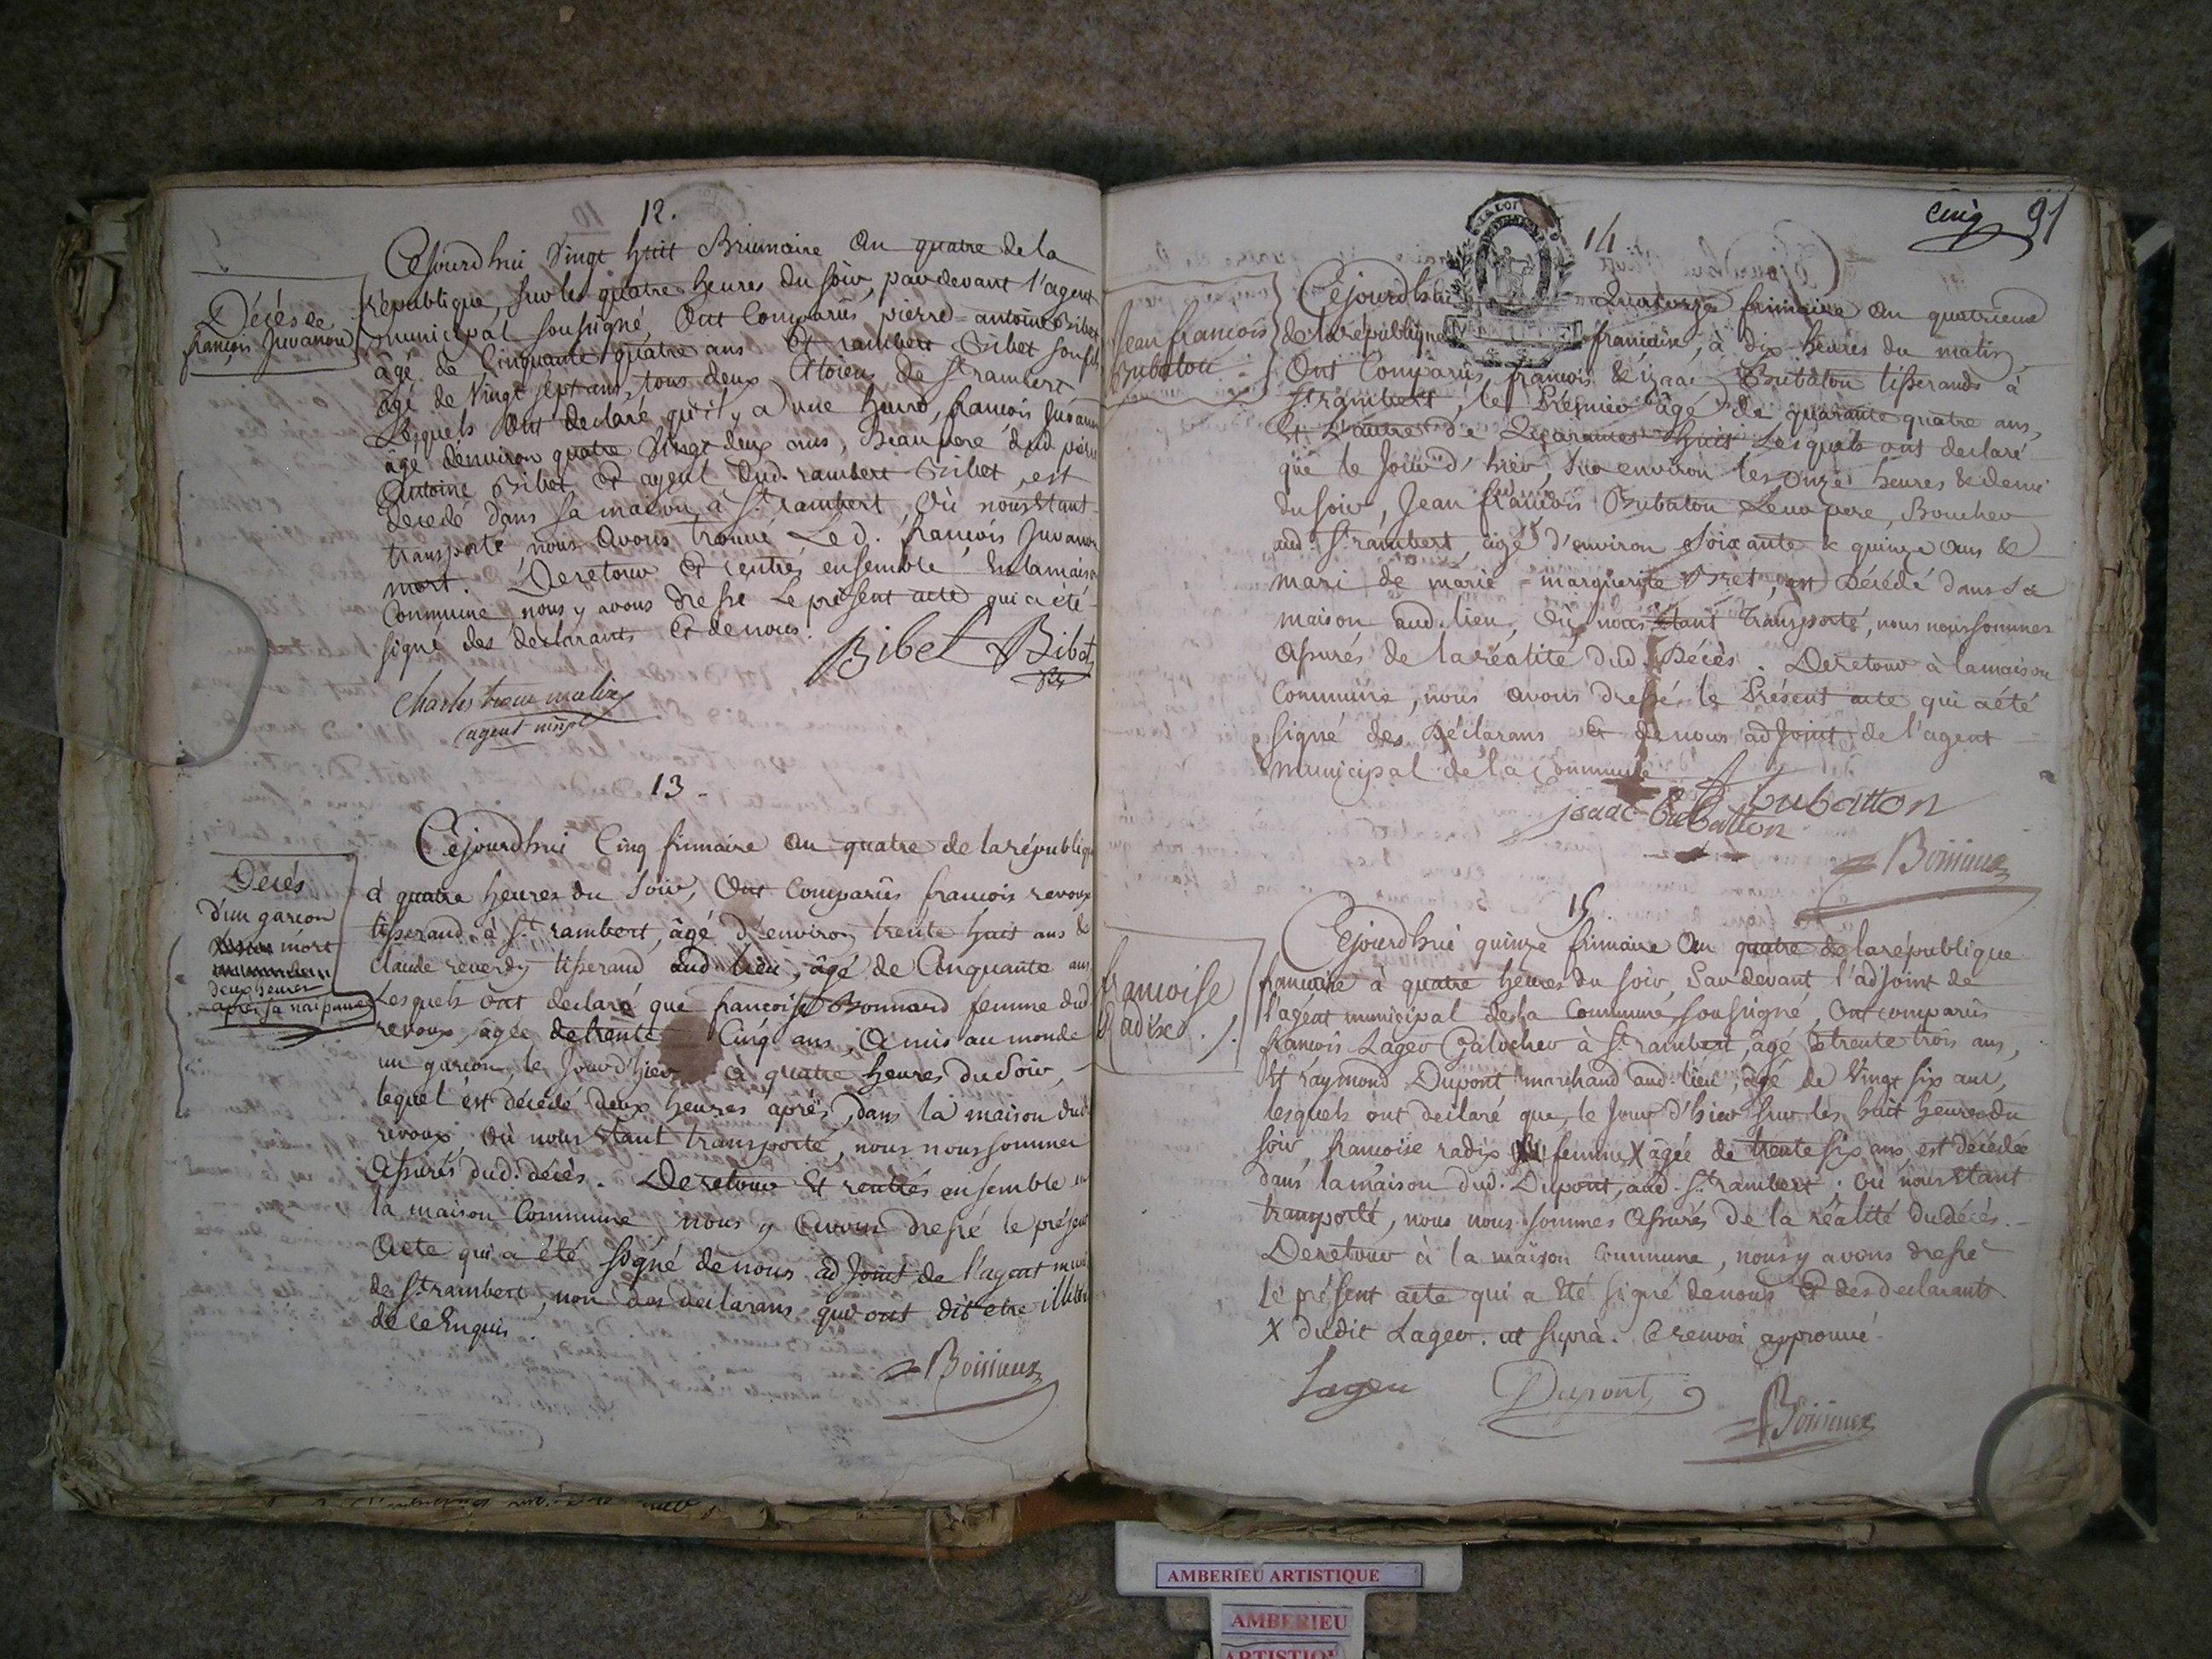 12.
Cejourdhui Vingt huit Brumaire an quatre de la
Décès de
françois Juvanon
république, sur les quatre heures du soir, pardevant l'agent
municipal soussigné, Ont Comparus pierre=antoine Bibet
âgé de Cinquante quatre ans Et rambert Bibet son fils
âgé de Vingt sept ans, tous deux Citoiens de St rambert
Lesquels Ont declaré qu'il y a une heure, françois Juvanon
âgé d'environ quatre Vingt deux ans, Beau pere dud. pierre
Antoine Bibet Et ayeul dud. rambert Bibet, est
décédé dans sa maison à St rambert, Où nous Etant
transporté nous avons trouvé Led. françois Juvanon
mort. De retour Et rentrés ensemble En la maison
Commune, nous y avons dressé Le présent acte qui a été
signé des declarants Et de nous.
Bibet Bibet
fils
Charles
agent mpl
13.
Cejourdhui Cinq frimaire an quatre de la république
Décès
d'un garcon
mort
deux heures
après sa naissance
à quatre heures du Soir, Ont Comparus françois revoux
tisserand à St rambert, âgé d'environ trente huit ans &
claude reverdy tisserand aud. lieu, âgé de Cinquante ans
Lesquels ont declaré que francoise Bonnard femme dud
revoux, âgée de trente Cinq ans, a mis au monde
un garcon, le Jour d'hier à quatre heures du Soir,
lequel est décédé deux heures après, dans la maison dud.
revoux Où nous Etant transporté, nous nous sommes
Assurés dud. décès. De retour Et rentrés ensemble en
la maison Commune nous y avons dressé le présent
Acte qui a été signé de nous adjoint de l'agent muni
de St rambert, non des declarans qui ont dit etre illitéré
de ce Enquis.
Boissieux
cinq 91
LA LOI
14
Cejourdhui Quatorze frimaire an quatrieme
Jean françois
Bubaton
de la république francaise, à dix heures du matin
Ont Comparus, françois & izaac Bubaton tisserands à
St rambert, le Premier âgé de quarante quatre ans,
Et L'autre de Quarante huit Lesquels ont declaré
que le Jour d'hier, Sur environ les onze heures & demi
du soir, Jean françois Bubaton Leur pere, Boucher
aud. St rambert, âgé d'environ Soixante & quinze ans &
mari de marie=marguerite Bret, est Décédé dans Sa
maison aud. lieu, Où nous Etant transporté, nous nous sommes
Assurés de la réalité dud. Décès. De retour à la maison
Commune, nous avons dressé le Présent acte qui a été
Signé des Déclarans Et de nous adjoint de l'agent
municipal de la Commune
bubatton
isaac bubatton
Boissieux
15
Cejourdhui quinze frimaire an quatre de la république
francoise
Radix
francaise à quatre heures du soir, Pardevant l'adjoint de
l'agent municipal de la Commune soussigné, Ont comparus
françois Lager Galocher à St rambert, âgé de trente trois ans,
Et raymond Dupont marchand aud. lieu, âgé de Vingt six ans,
lesquels ont declaré que, le Jour d'hier sur les huit heures du
soir, francoise radix femme X âgée de trente six ans, est décédée
dans la maison dud. Dupont, aud. St rambert. Où nous Etant
transporté, nous nous sommes Assurés de la réalité du décès.
De retour à la maison Commune, nous y avons dressé
le présent acte qui a Eté signé de nous Et des declarants
X dudit Lager. ut suprà. Ce renvoi approuvé.
Lager Dupont Boissieux
AMBERIEU ARTISTIQUE
AMBERIEU
ARTISTIQUE